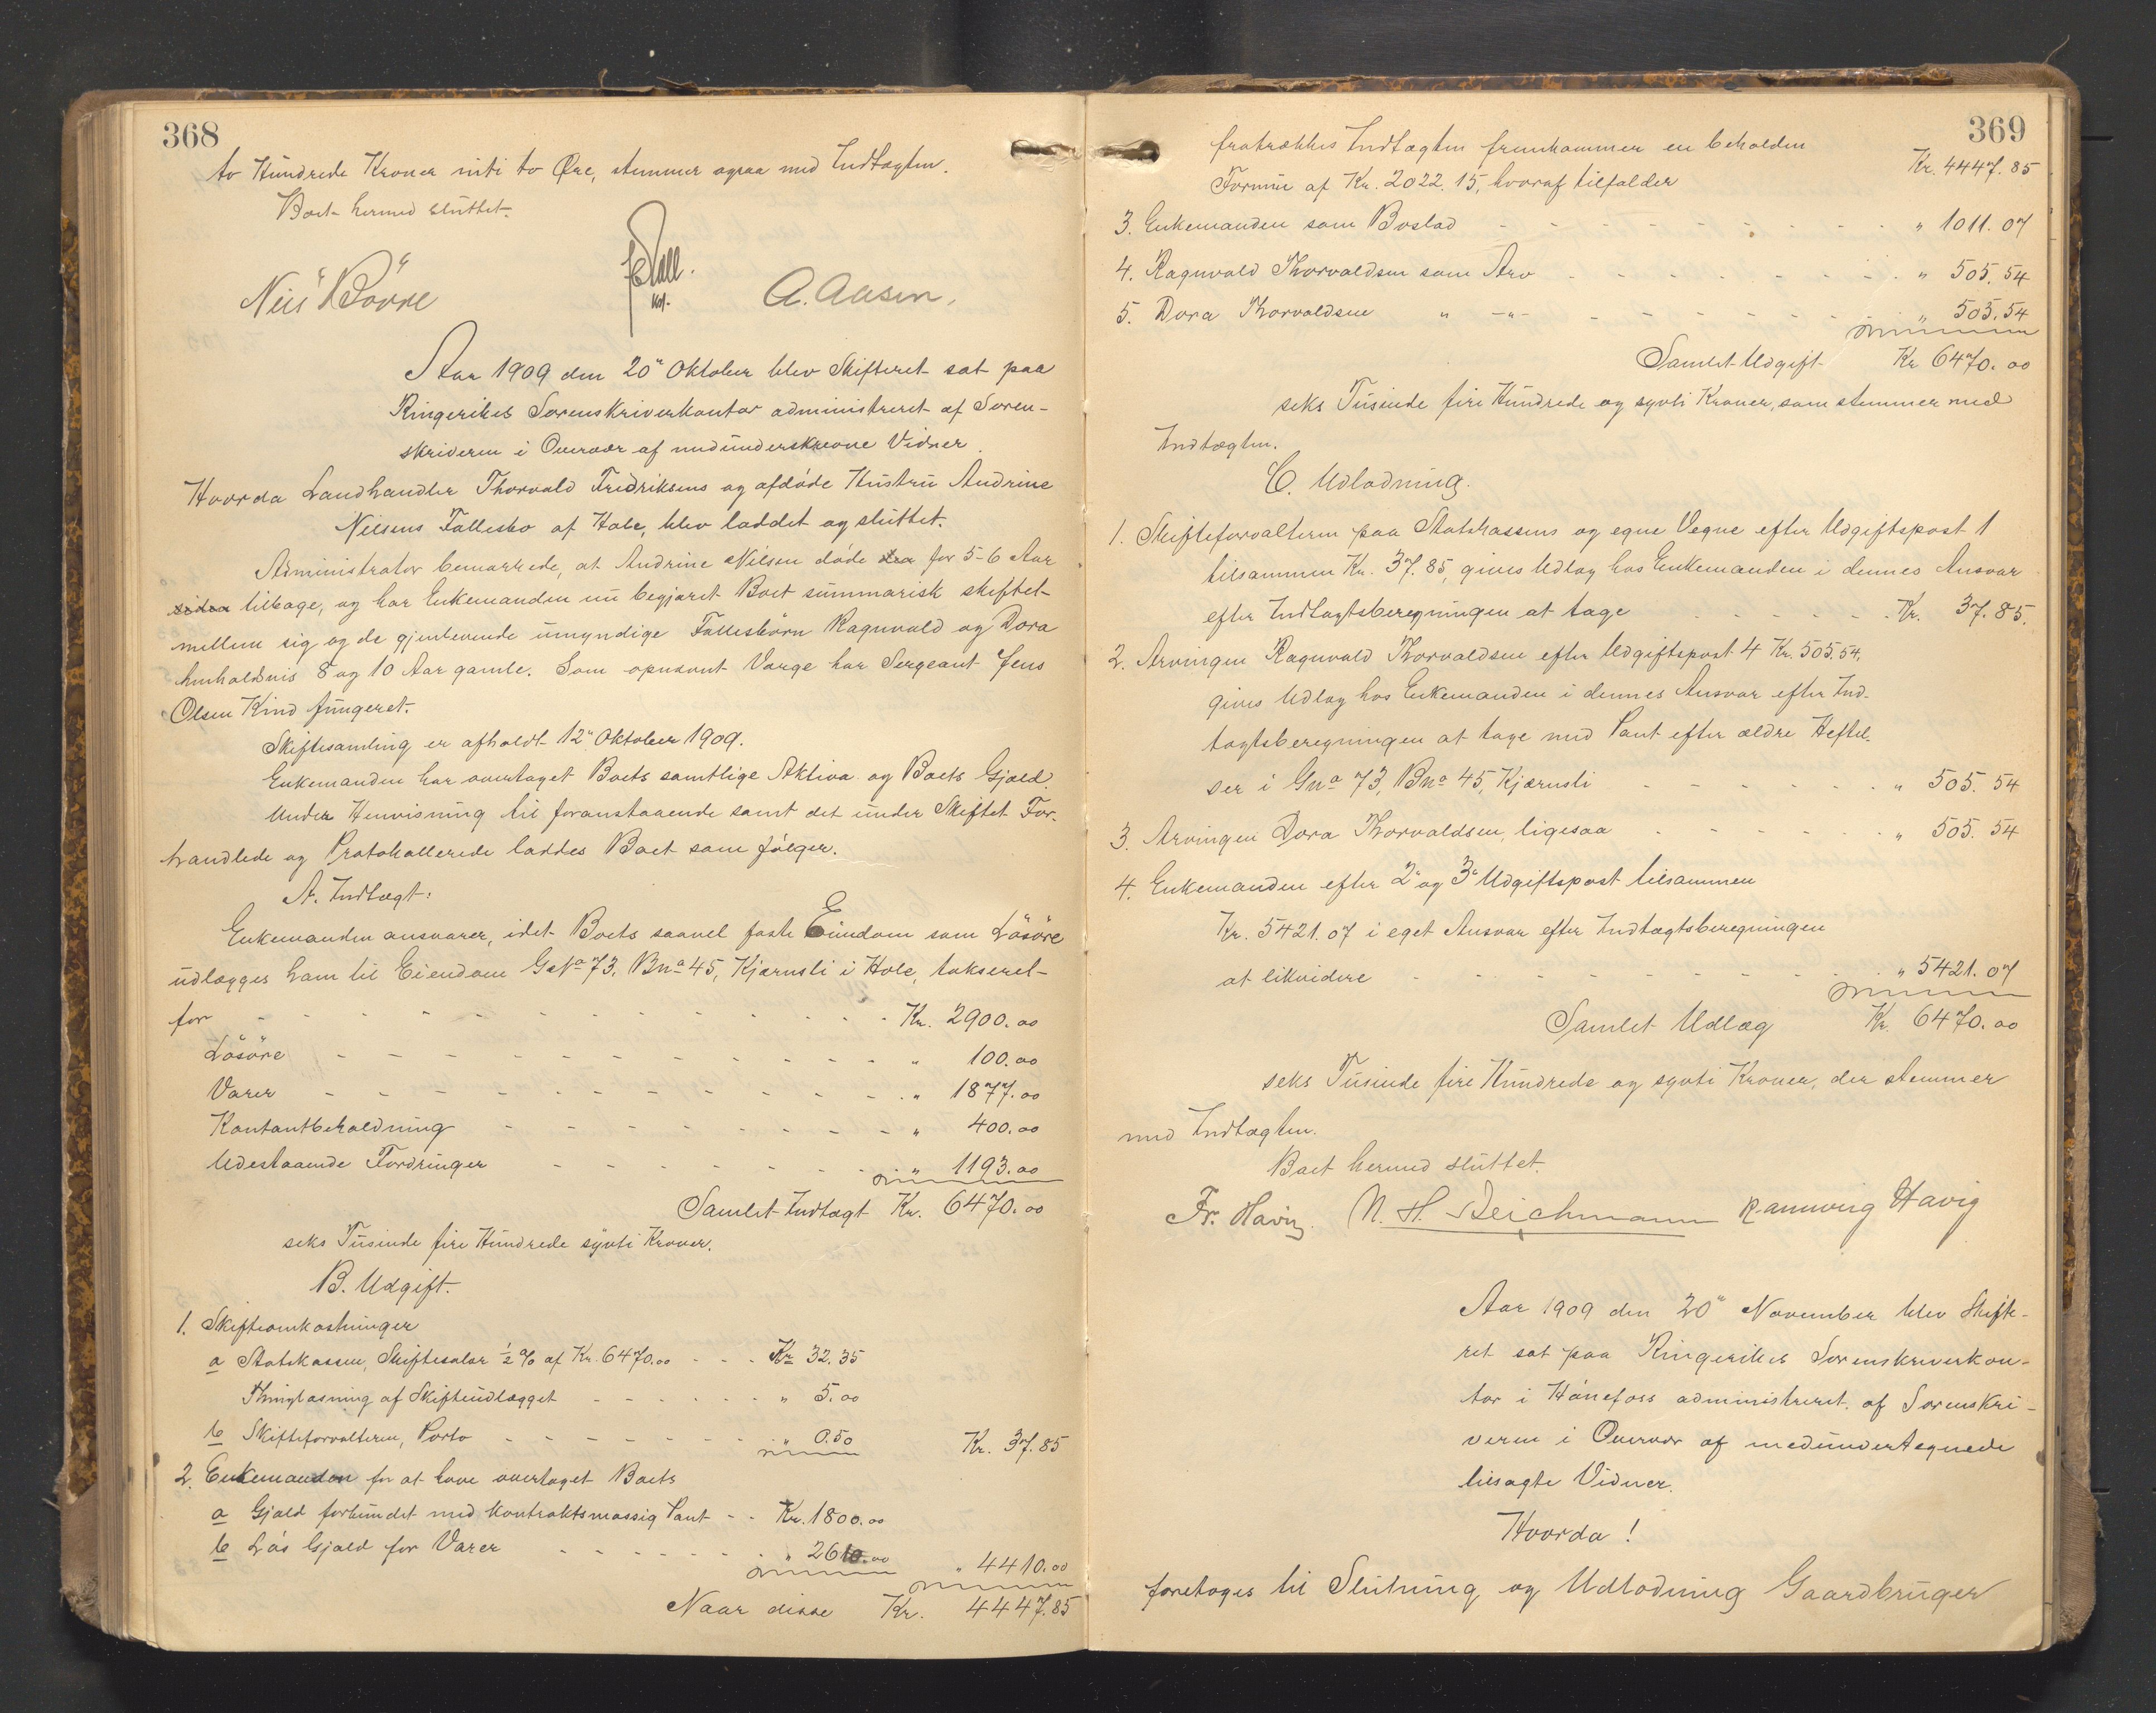 368
to Hundrede Kroner niti to Øre, stemmer ogsaa med Indtægten.
Boet hermed sluttet.
Nils Børre
A. Aasen.
Aar 1909 den 20de Oktober blev Skifteret sat paa
Ringerikes Sorenskriverkontor administreret af Soren-
skriveren i Overvær af medunderskrevne Vidner.
Hvorda Landhandler Thorvald Fredriksens og afdøde Hustru Andrine
Nilsens Fællesbo af Hole, blev loddet og sluttet.
Administrator bemærkede, at Andrine Nilsen døde for 5-6 Aar
siden tilbage, og har Enkemanden nu begjæret Boet summarisk skiftet
mellem sig og de gjenlevende umyndige Fællesbørn Ragnvald og Dora
henholdsvis 8 og 10 Aar gamle. Som opnævnt Værge har Sergeant Jens
Olsen Kind fungeret.
Skiftesamling er afholdt 12te Oktober 1909.
Enkemanden har overtaget Boets samtlige Aktiva og Boets Gjæld.
Under Henvisning til foranstaaende samt det under Skiftet For-
handlede og Protokollerede loddes Boet som følger.
A. Indtægt:
Enkemanden ansvarer, idet Boets saavel faste Eiendom som Løsøre
udlægges ham til Eiendom GNo 73, Bno 45, Kjærnsli i Hole, takseret
for - - - Kr. 2900.00
Løsøre - - - " 100.00
Varer - - - " 1877.00
Kontantbeholdning - - - " 400.00
Udestaaende Fordringer - - - " 1193.00
Samlet Indtægt Kr. 6470.00
seks Tusinde fire Hundrede sytti Kroner.
B. Udgift.
1. Skifteomkostninger
a Statskassen, Skiftesalær ½ % af Kr. 6470.00 - - - Kr 32.35
Thinglæsning af Skifteudlægget - - - " 5.00
b Skifteforvalteren, Porto - - - " 0.50 Kr. 37.85
2. Enkemanden for at have overtaget Boets
a Gjæld forbundet med kontraktsmæssig Pant - - Kr. 1800.00
b Løs Gjæld for Varer - - - " 2610.00 " 4410.00
Naar disse Kr. 4447.85
369
fratrækkes Indtægten fremkommer en beholden
Formue af Kr. 2022.15, hvoraf tilfalder Kr. 4447.85
3. Enkemanden som Boslod - - - " 1011.07
4. Ragnvald Thorvaldsen som Arv - - - " 505.54
5. Dora Thorvaldsen " -"- - - - " 505.54
Samlet Udgift Kr 6470.00
seks Tusinde fire Hundrede og sytti Kroner, som stemmer med
Indtægten.
C. Udlodning.
1. Skifteforvalteren paa Statskassens og egne Vegne efter Udgiftspost 1
tilsammen Kr. 37.85, gives Udlæg hos Enkemanden i dennes Ansvar
efter Indtægtsberegningen at tage - - - Kr. 37.85.
2. Arvingen Ragnvald Thorvaldsen efter Udgiftspost 4 Kr. 505.54,
gives Udlæg hos Enkemanden i dennes Ansvar efter Ind-
tægtsberegningen at tage med Pant efter ældre Heftel-
ser i Gno 73, Bno 45, Kjærnsli - - - " 505.54
3. Arvingen Dora Thorvaldsen, ligesaa - - - " 505.54
4. Enkemanden efter 2" og 3" Udgiftspost tilsammen
Kr. 5421.07 i eget Ansvar efter Indtægtsberegningen
at likvidere - - - " 5421.07
Samlet Udlæg Kr. 6470.00
seks Tusinde fire Hundrede og sytti Kroner, der stemmer
med Indtægten.
Boet hermed sluttet.
Fr. Havig. N. H. Deichmann Rannveig Havig
Aar 1909 den 20" November blev Skifte-
ret sat paa Ringerikes Sorenskriverkon-
tor i Hønefoss administreret af Sorenskri-
veren i Overvær af medundertegnede
tilsagte Vidner.
Hvorda!
foretoges til Slutning og Udlodning Gaardbruger